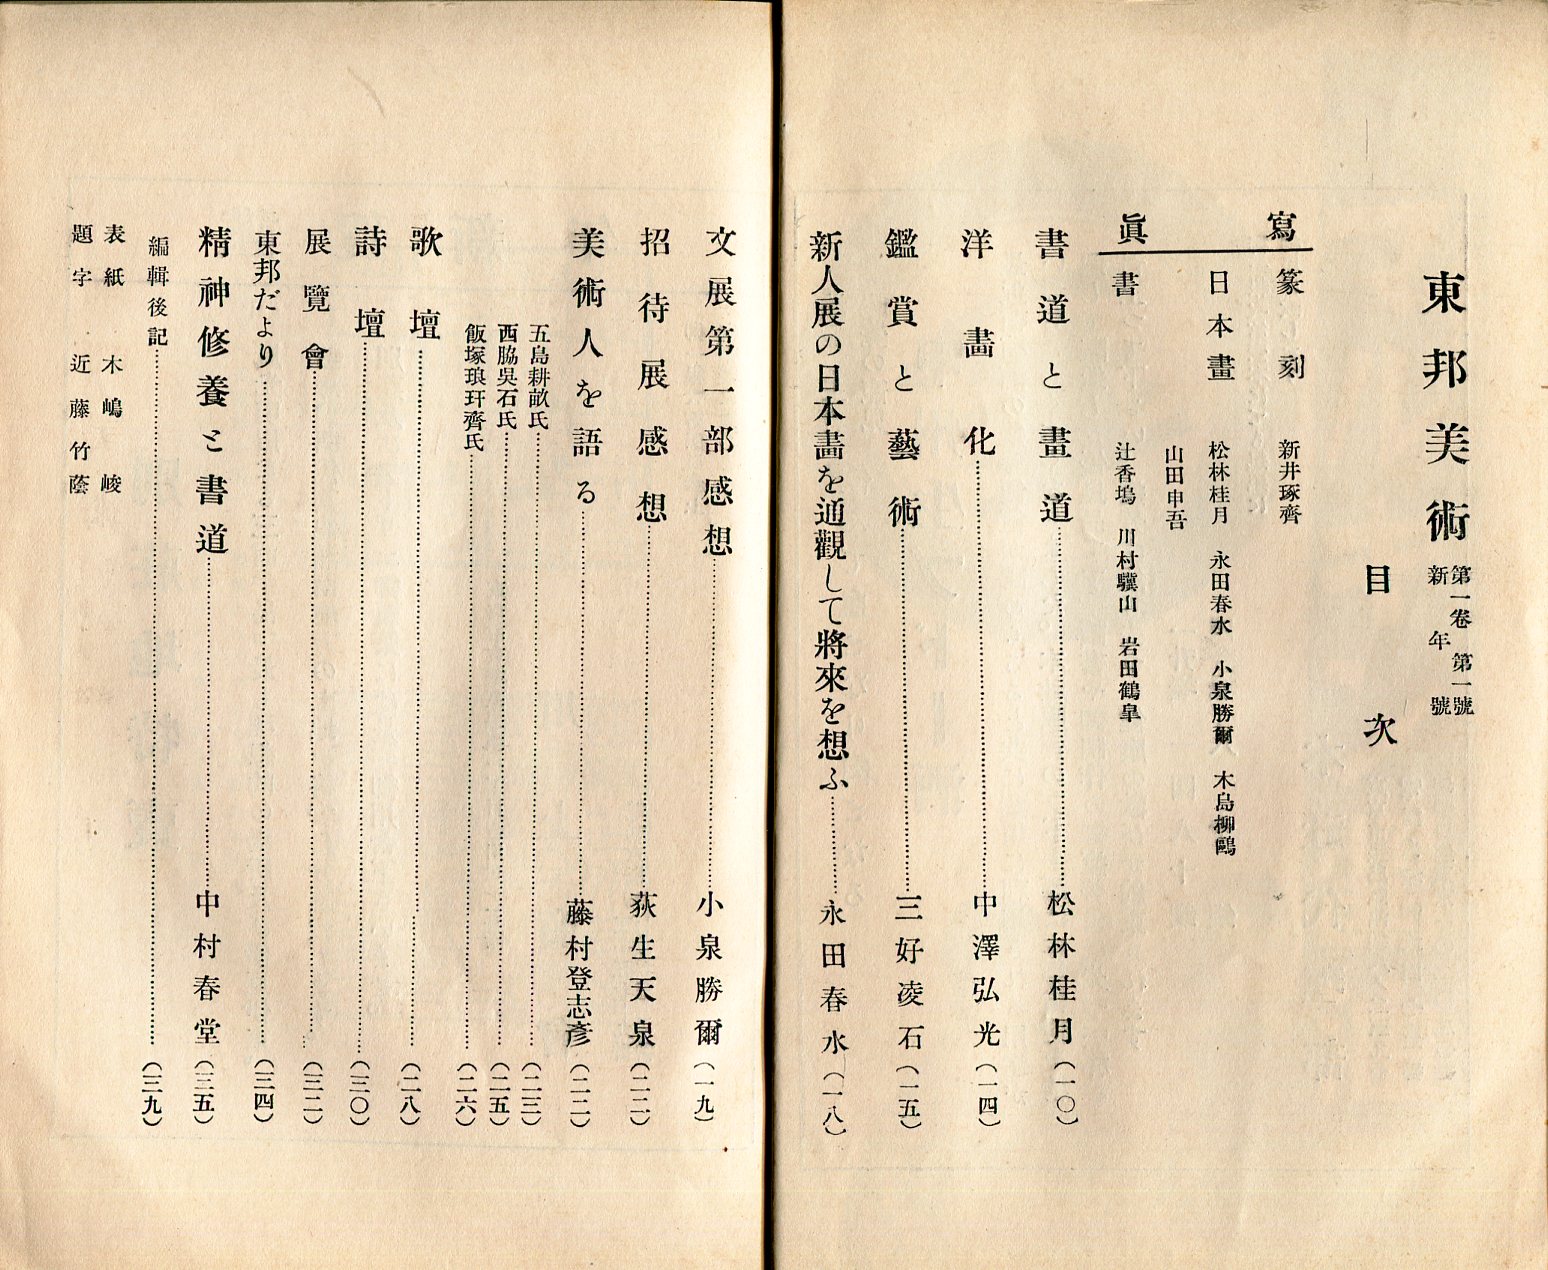 東邦美術 第一卷 第一號 新年號
目次
寫眞
篆刻 新井琢齊
日本畫 松林桂月 永田春水 小泉勝爾 木島柳鷗
山田申吾
書 辻香塢 川村驥山 岩田鶴皐
書道と畫道 松林桂月 (一〇)
洋畵化 中澤弘光 (一四)
鑑賞と藝術 三好凌石 (一五)
新人展の日本畵を通觀して將來を想ふ 永田春水 (一八)
文展第一部感想 小泉勝爾 (一九)
招待展感想 荻生天泉 (二二)
美術人を語る 藤村登志彥 (二二)
五島耕畝氏 (二三)
西脇吳石氏 (二五)
飯塚琅玕齊氏 (二六)
歌壇 (二八)
詩壇 (三〇)
展覽會 (三二)
東邦だより (三四)
精神修養と書道 中村春堂 (三五)
編輯後記 (三九)
表紙 木嶋峻
題字 近藤竹蔭